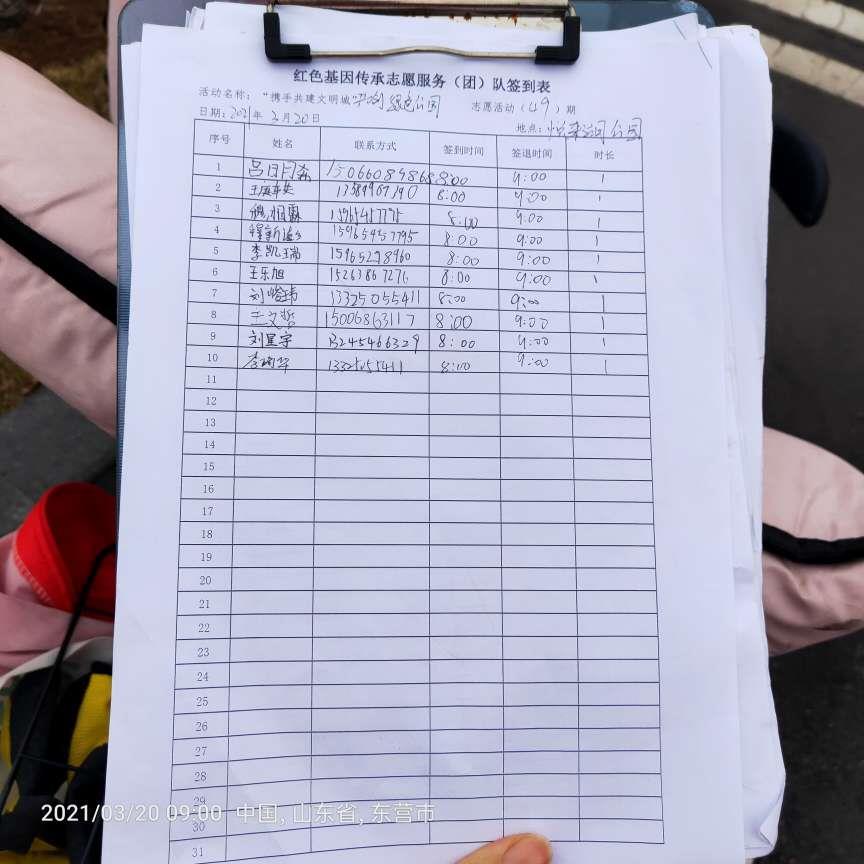 红色基因传承志愿服务（团）队签到表
活动名称：“携手共建文明城 公园 志愿活动（49）期
日期：2021年3月20日 地点： 公园
序号 姓名 联系方式 签到时间 签退时间 时长
1 15066084868 8:00 9:00 1
2 8:00 9:00 1
3 8:00 9:00 1
4 15965457795 8:00 9:00 1
5 李凯瑞 15965298960 8:00 9:00 1
6 王乐旭 15263867276 8:00 9:00 1
7 13325055411 8:00 9:00 1
8 王文哲 15006863117 8:00 9:00 1
9 刘星宇 13245466329 8:00 9:00 1
10 8:00 9:00 1
11
12
13
14
15
16
17
18
19
20
21
22
23
24
25
26
27
28
29
30
31
2021/03/20 09:00 中国, 山东省, 东营市